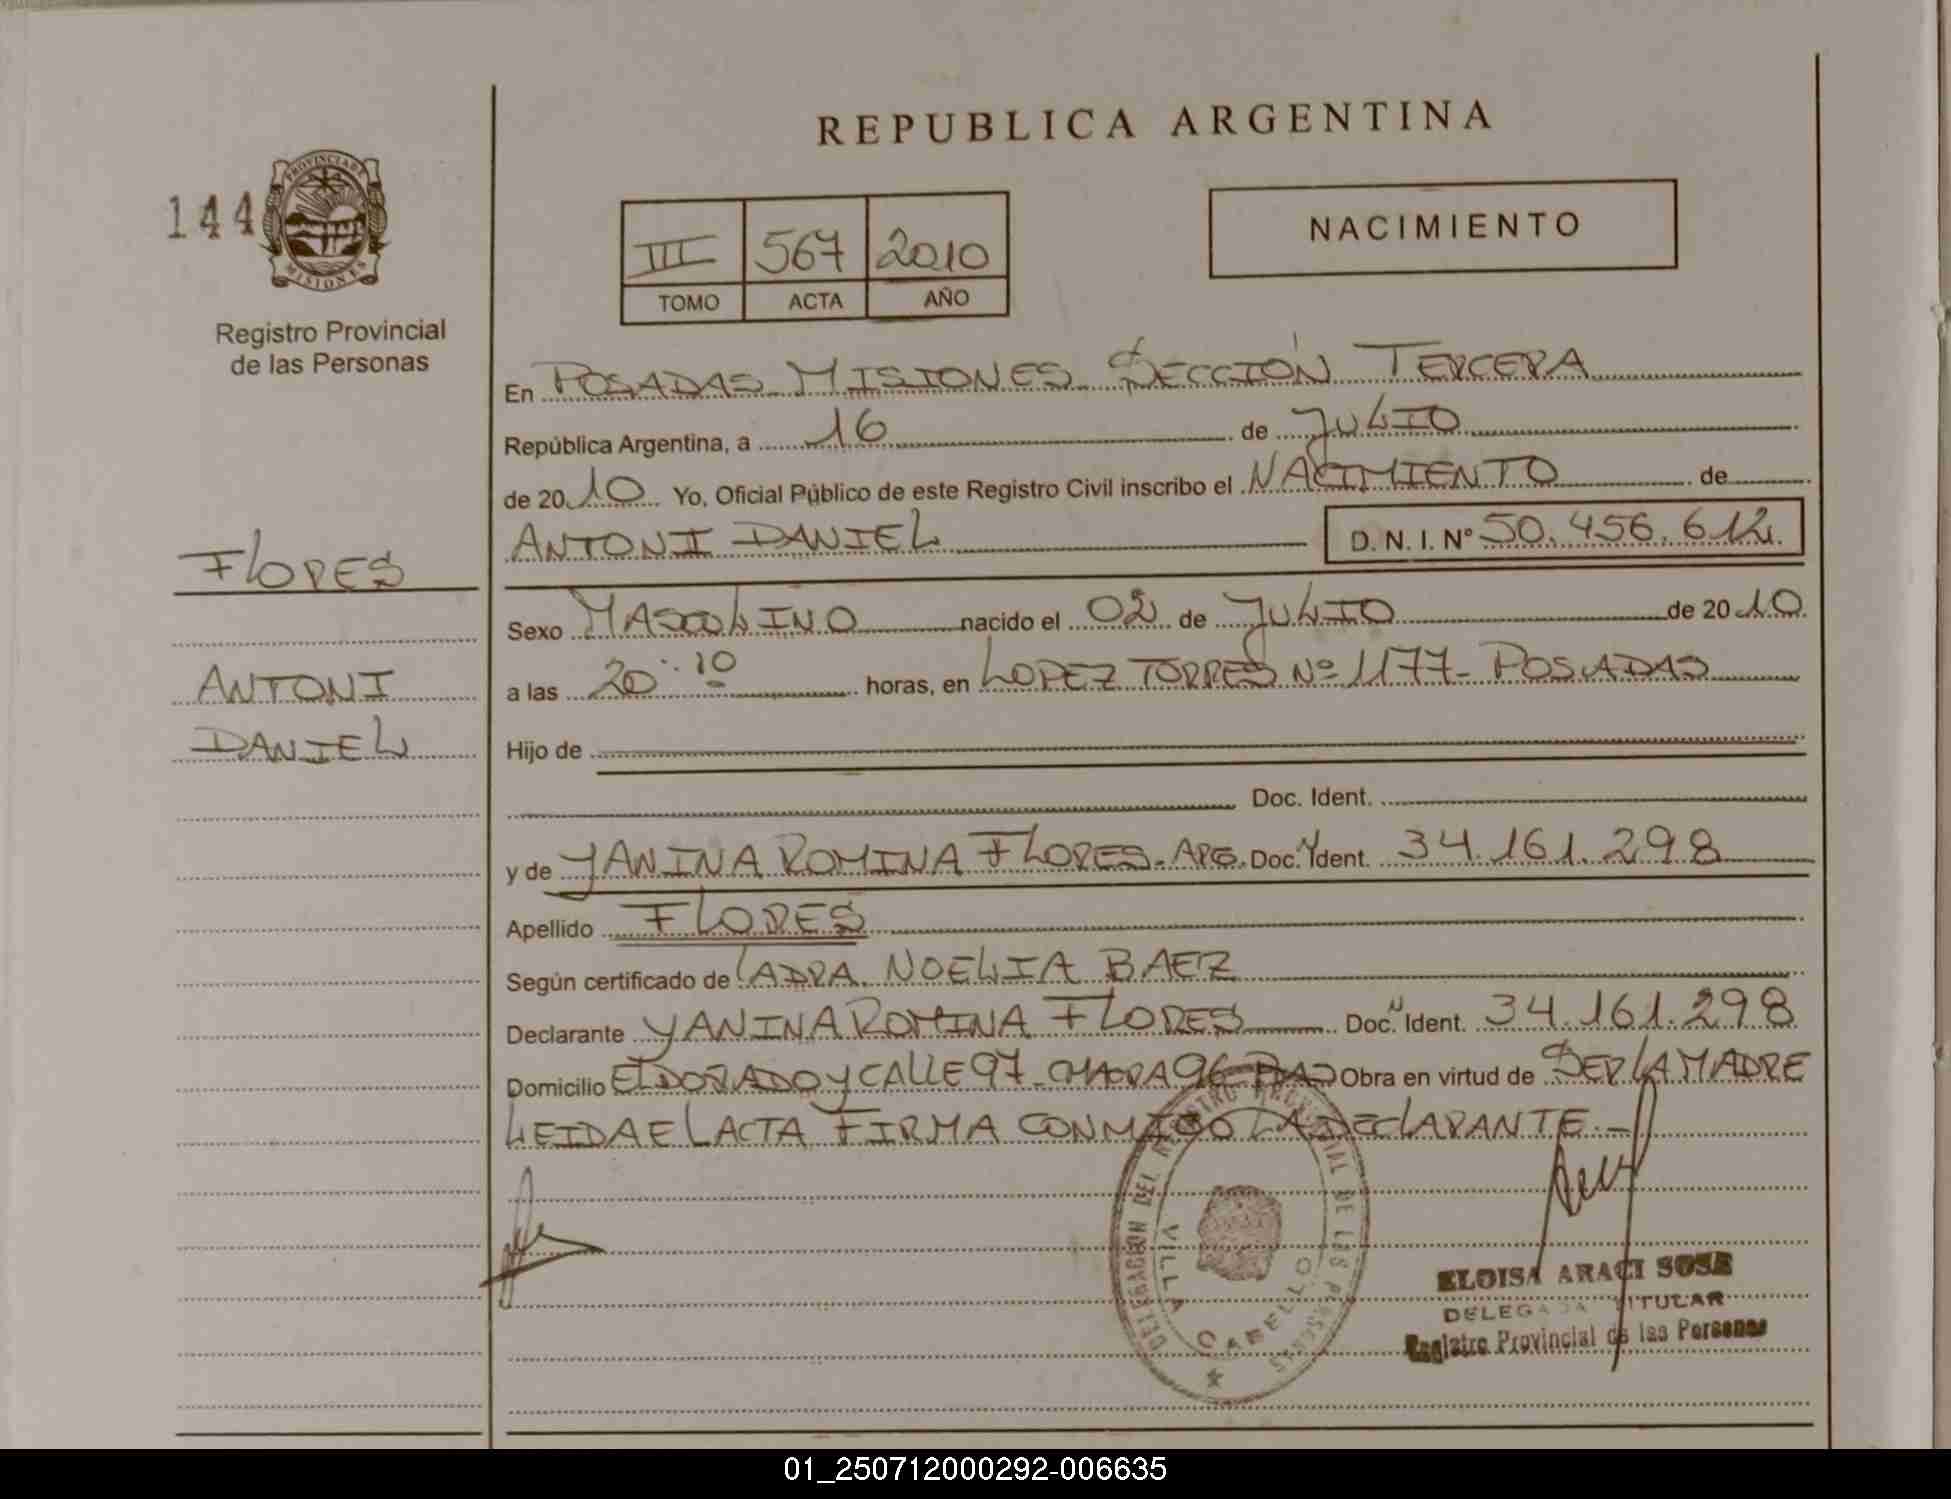 REPUBLICA ARGENTINA
144
PROVINCIA DE
MISIONES
Registro Provincial
de las Personas
III 567 2010
TOMO ACTA AÑO
NACIMIENTO
En POSADAS MISIONES SECCIÓN TERCERA
República Argentina, a 16 de JULIO
de 20 10 Yo, Oficial Público de este Registro Civil inscribo el NACIMIENTO de
ANTONI DANIEL D. N. I. Nº 50.456.612
FLORES
Sexo MASCULINO nacido el 02 de JULIO de 20 10
ANTONI
a las 20:10 horas, en LOPEZ TORRES Nº 1177- POSADAS
DANIEL
Hijo de
Doc. Ident.
y de YANINA ROMINA FLORES- ARG. Doc. Ident. 34.161.298
Apellido FLORES
Según certificado de NOELIA BAEZ
Declarante YANINA ROMINA FLORES Doc. Ident. 34.161.298
Domicilio EL DORADO Y CALLE 97- CHACRA 96 Obra en virtud de SER LA MADRE
LEIDA EL ACTA FIRMA CONMIGO LA DECLARANTE.-
DELEGACION DEL REGISTRO PROVINCIAL DE LAS PERSONAS
VILLA CABELLO
ELOISA ARACI SOSA
DELEGADA TITULAR
Registro Provincial de las Personas
01_250712000292-006635